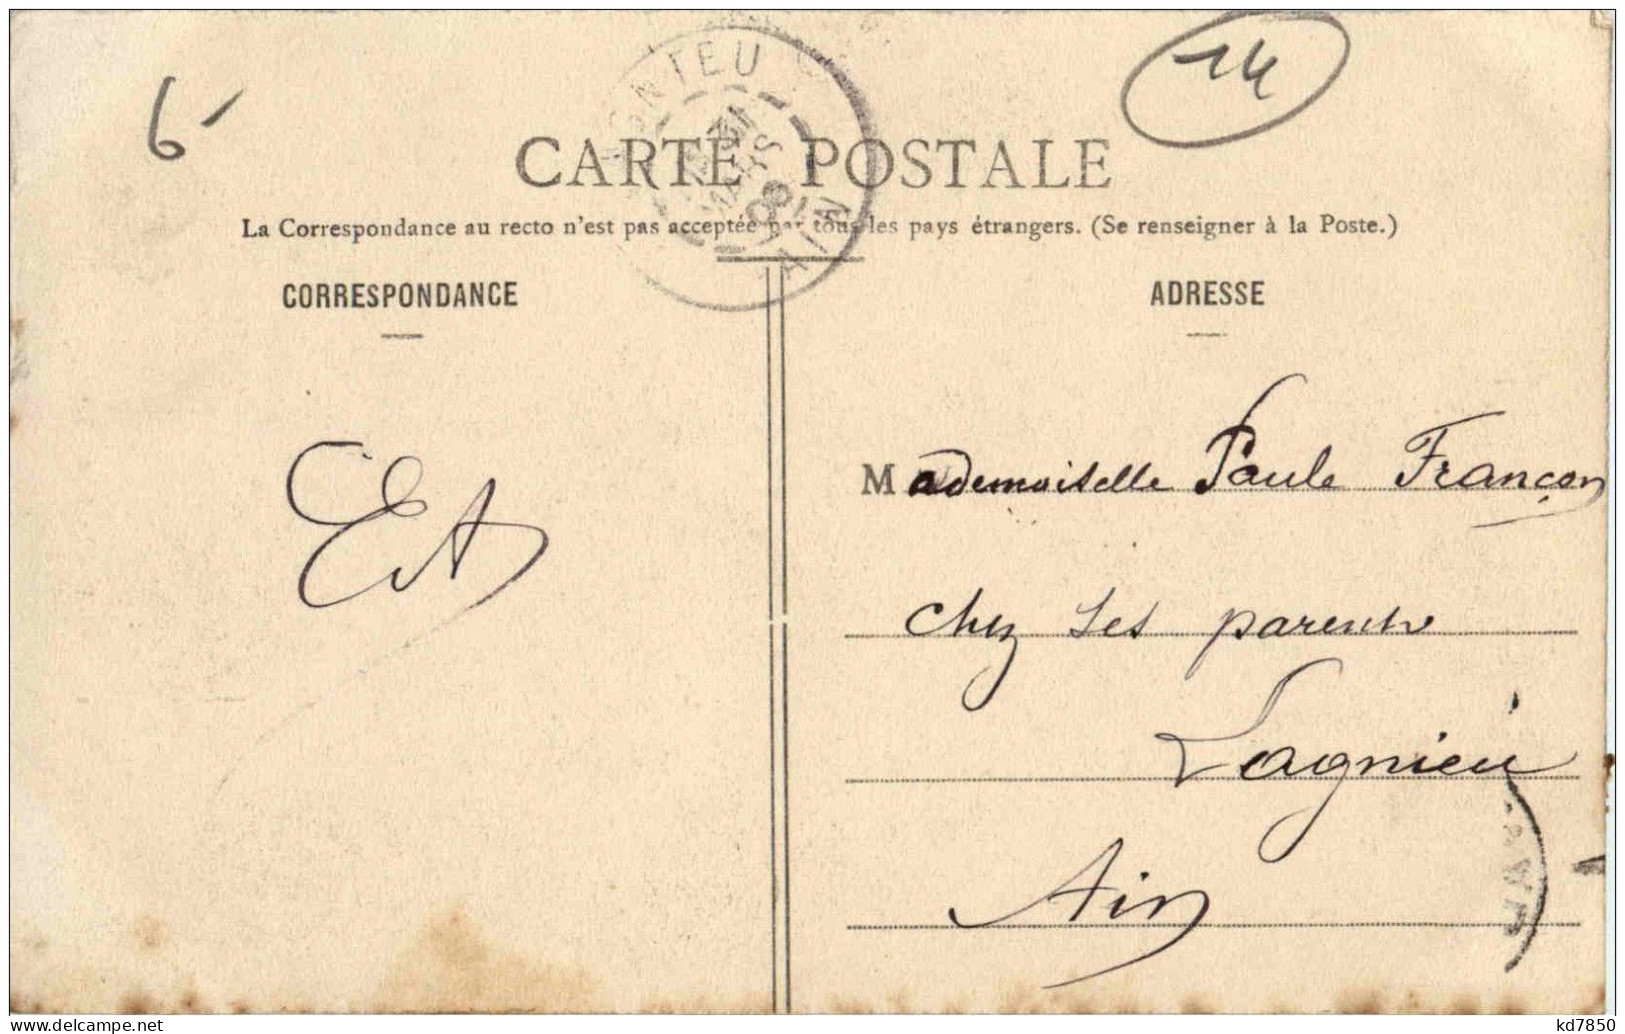 6-
14
LAGNIEU
MARS
08
AIN
CARTE POSTALE
La Correspondance au recto n'est pas acceptée par tous les pays étrangers. (Se renseigner à la Poste.)
CORRESPONDANCE
ADRESSE
EA
Mademoiselle Paule Françon
chez ses parents
Lagnieu
Ain
delcampe.net
kd7850